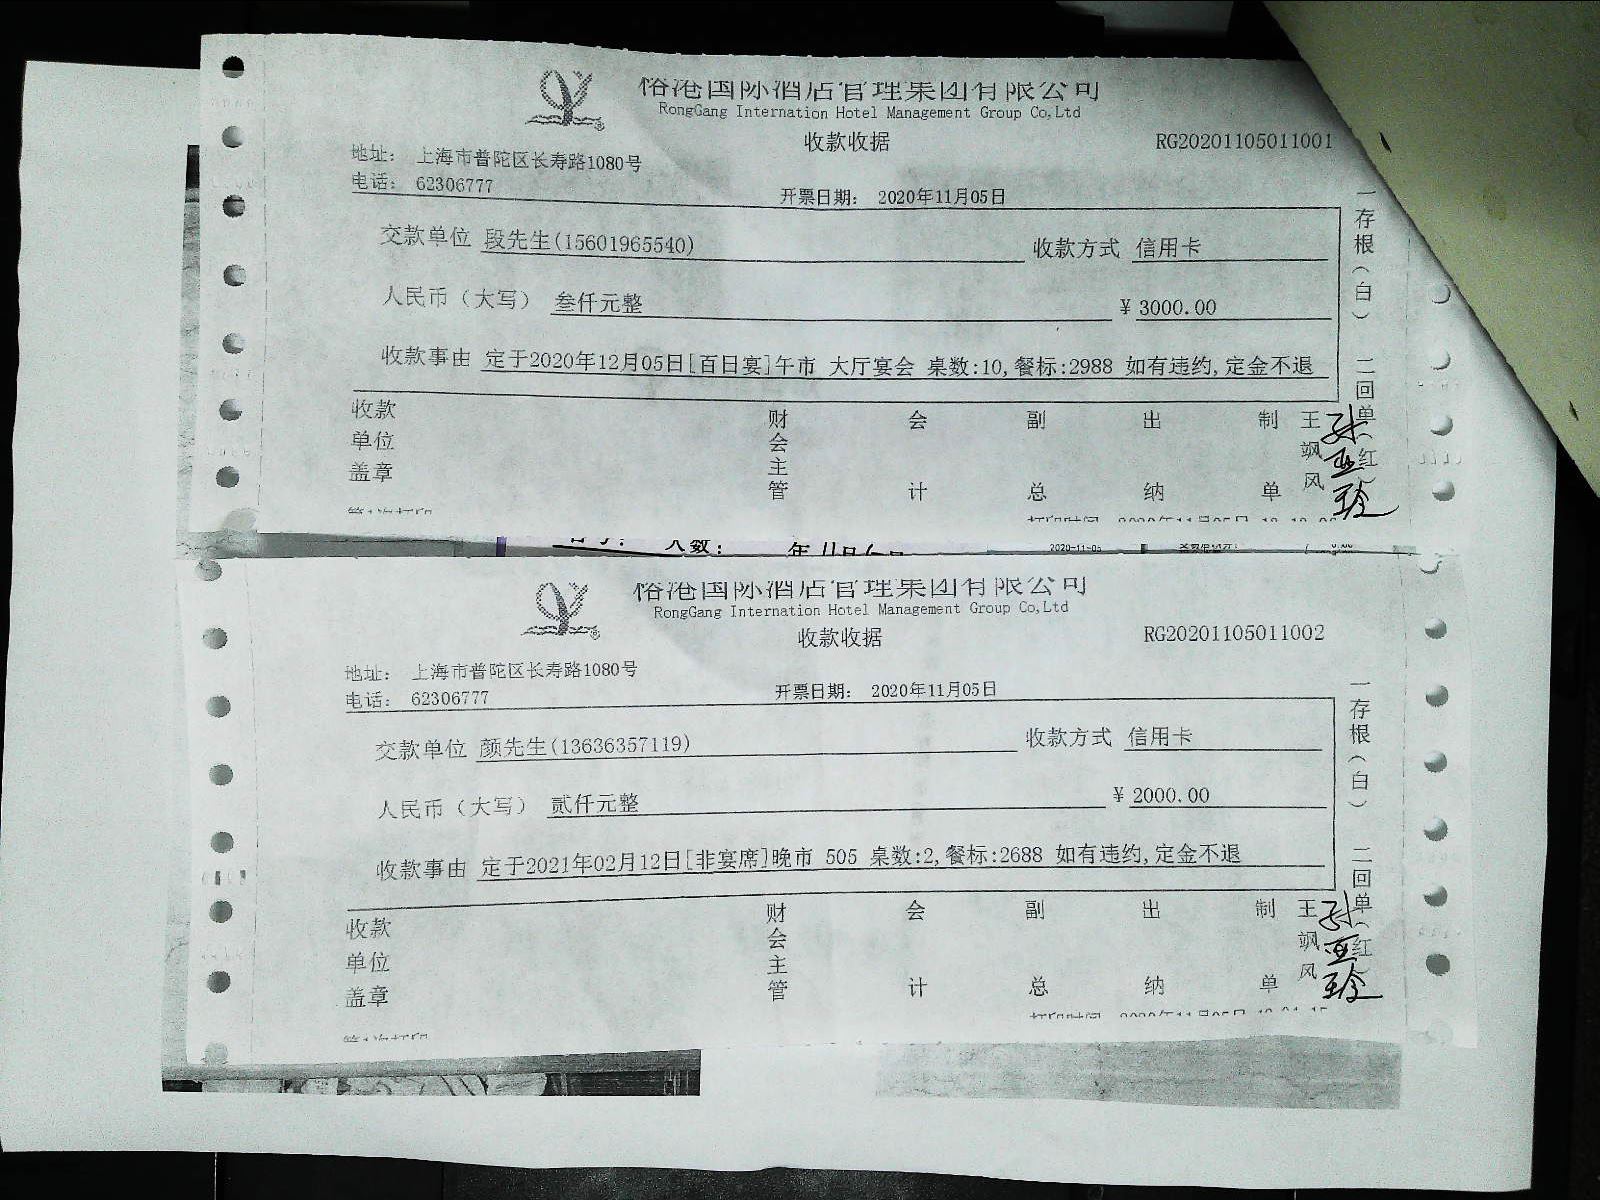 榕港国际酒店管理集团有限公司
RongGang Internation Hotel Management Group Co,Ltd
收款收据 RG20201105011001
地址： 上海市普陀区长寿路1080号
电话： 62306777
开票日期： 2020年11月05日
交款单位 段先生(15601965540) 收款方式 信用卡
人民币（大写） 叁仟元整 ¥ 3000.00
收款事由 定于2020年12月05日[百日宴]午市 大厅宴会 桌数:10,餐标:2988 如有违约,定金不退
收款单位盖章 财会主管 会计 副总 出纳 制单 王飒风
一存根（白） 二回单（红）
第1次打印 打印时间 2020年11月05日
人数： 年11月
2020-11-05
榕港国际酒店管理集团有限公司
RongGang Internation Hotel Management Group Co,Ltd
收款收据 RG20201105011002
地址： 上海市普陀区长寿路1080号
电话： 62306777
开票日期： 2020年11月05日
交款单位 颜先生(13636357119) 收款方式 信用卡
人民币（大写） 贰仟元整 ¥ 2000.00
收款事由 定于2021年02月12日[非宴席]晚市 505 桌数:2,餐标:2688 如有违约,定金不退
收款单位盖章 财会主管 会计 副总 出纳 制单 王飒风
一存根（白） 二回单（红）
第1次打印 打印时间 2020年11月05日